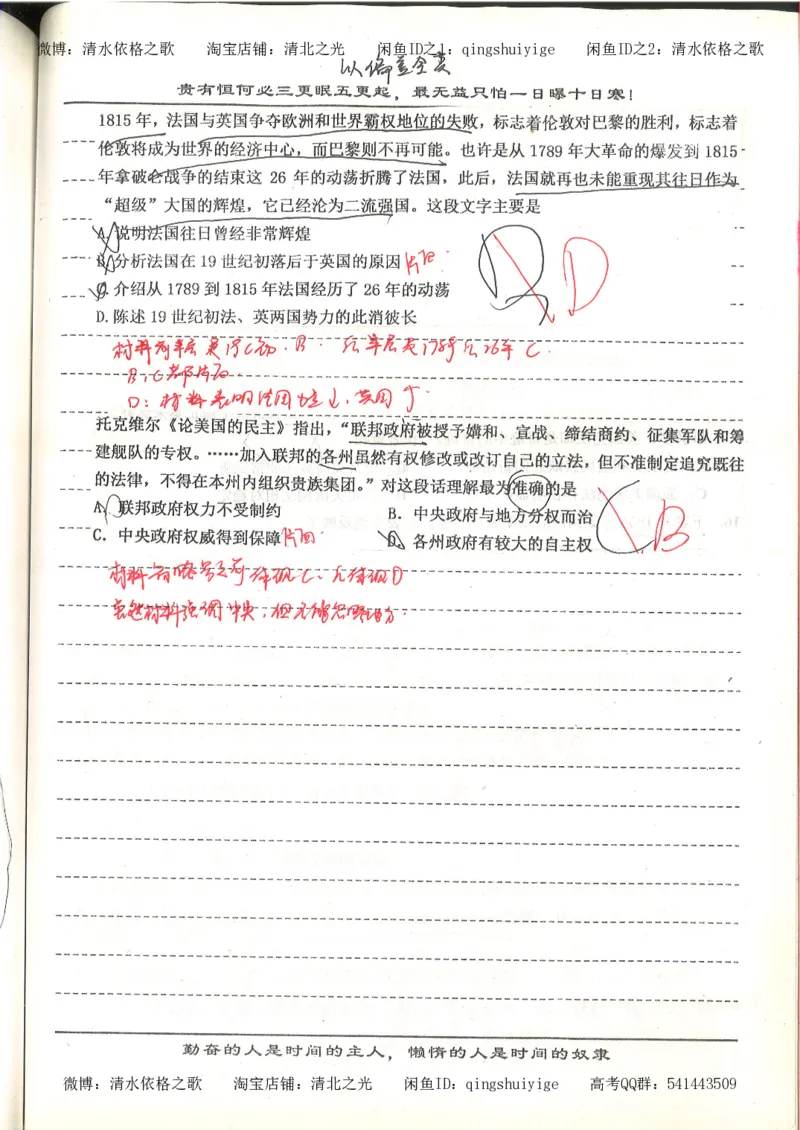 微博：清水依格之歌 淘宝店铺：清北之光 闲鱼ID之1：qingshuiyige 闲鱼ID之2：清水依格之歌
以偏盖全类
贵有恒何必三更眠五更起，最无益只怕一日曝十日寒！
1815年，法国与英国争夺欧洲和世界霸权地位的失败，标志着伦敦对巴黎的胜利，标志着
伦敦将成为世界的经济中心，而巴黎则不再可能。也许是从1789年大革命的爆发到1815
年拿破仑战争的结束这 26 年的动荡折腾了法国，此后，法国就再也未能重现其往日作为
“超级”大国的辉煌，它已经沦为二流强国。这段文字主要是
A. 说明法国往日曾经非常辉煌
B. 分析法国在19世纪初落后于英国的原因 片面
C. 介绍从1789到1815年法国经历了26年的动荡
D. 陈述19世纪初法、英两国势力的此消彼长
D
B、C都片面
D：材料表明法国
托克维尔《论美国的民主》指出，“联邦政府被授予媾和、宣战、缔结商约、征集军队和筹
建舰队的专权。……加入联邦的各州虽然有权修改或改订自己的立法，但不准制定追究既往
的法律，不得在本州内组织贵族集团。”对这段话理解最为准确的是
A. 联邦政府权力不受制约 B. 中央政府与地方分权而治
C. 中央政府权威得到保障 片面 D. 各州政府有较大的自主权
B
虽然材料强调中央，但不能忽略地方
勤奋的人是时间的主人，懒惰的人是时间的奴隶
微博：清水依格之歌 淘宝店铺：清北之光 闲鱼ID：qingshuiyige 高考QQ群：541443509